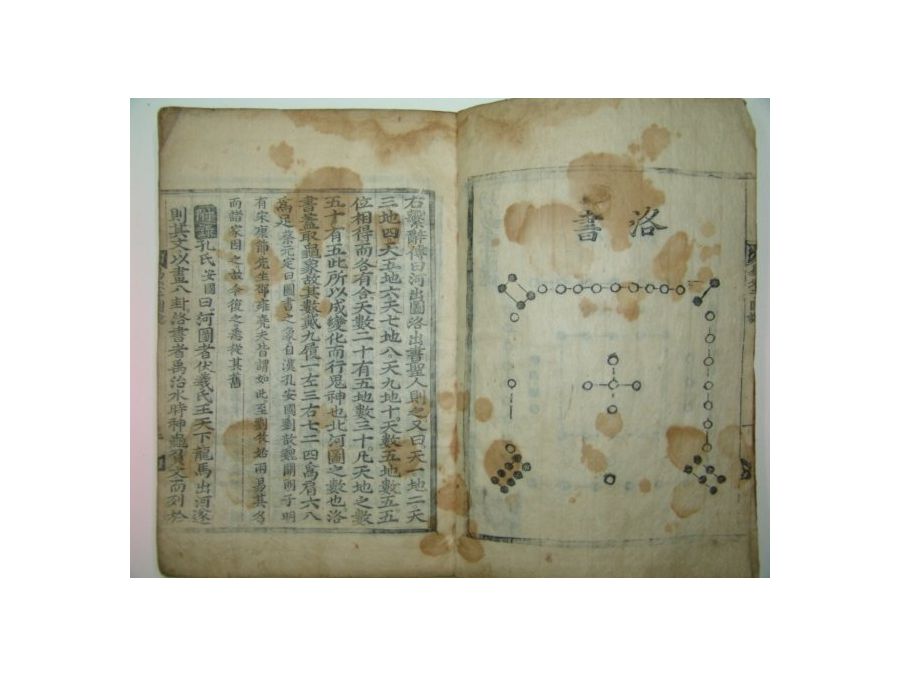 洛書
右繫辭傳曰河出圖洛出書聖人則之又曰天一地二天
三地四天五地六天七地八天九地十天數五地數五五
位相得而各有合天數二十有五地數三十凡天地之數
五十有五此所以成變化而行鬼神也此河圖之數也洛
書蓋取龜象故其數戴九履一左三右七二四爲肩六八
爲足蔡元定曰圖書之象自漢孔安國劉歆魏關朗子明
有宋康節先生邵雍堯夫皆謂如此至劉牧始兩易其名
而諸家因之故今復之悉從其舊
附錄孔氏安國曰河圖者伏羲氏王天下龍馬出河遂
則其文以畫八卦洛書者禹治水時神龜負文而列於